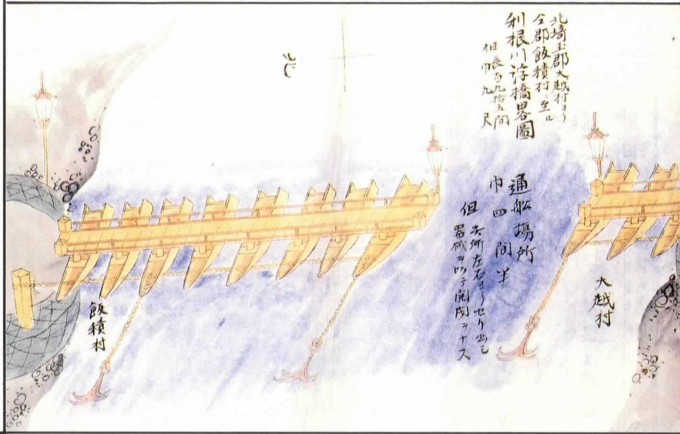 北埼玉郡大越村ヨリ
仝郡飯積村ニ至ル
利根川浮橋畧圖
但長百九拾五間
巾九尺
北
通船場所
巾四間半
但 左右ヨリセリ出シ
器械ヲ以テ開閉ヲナス
大越村
飯積村